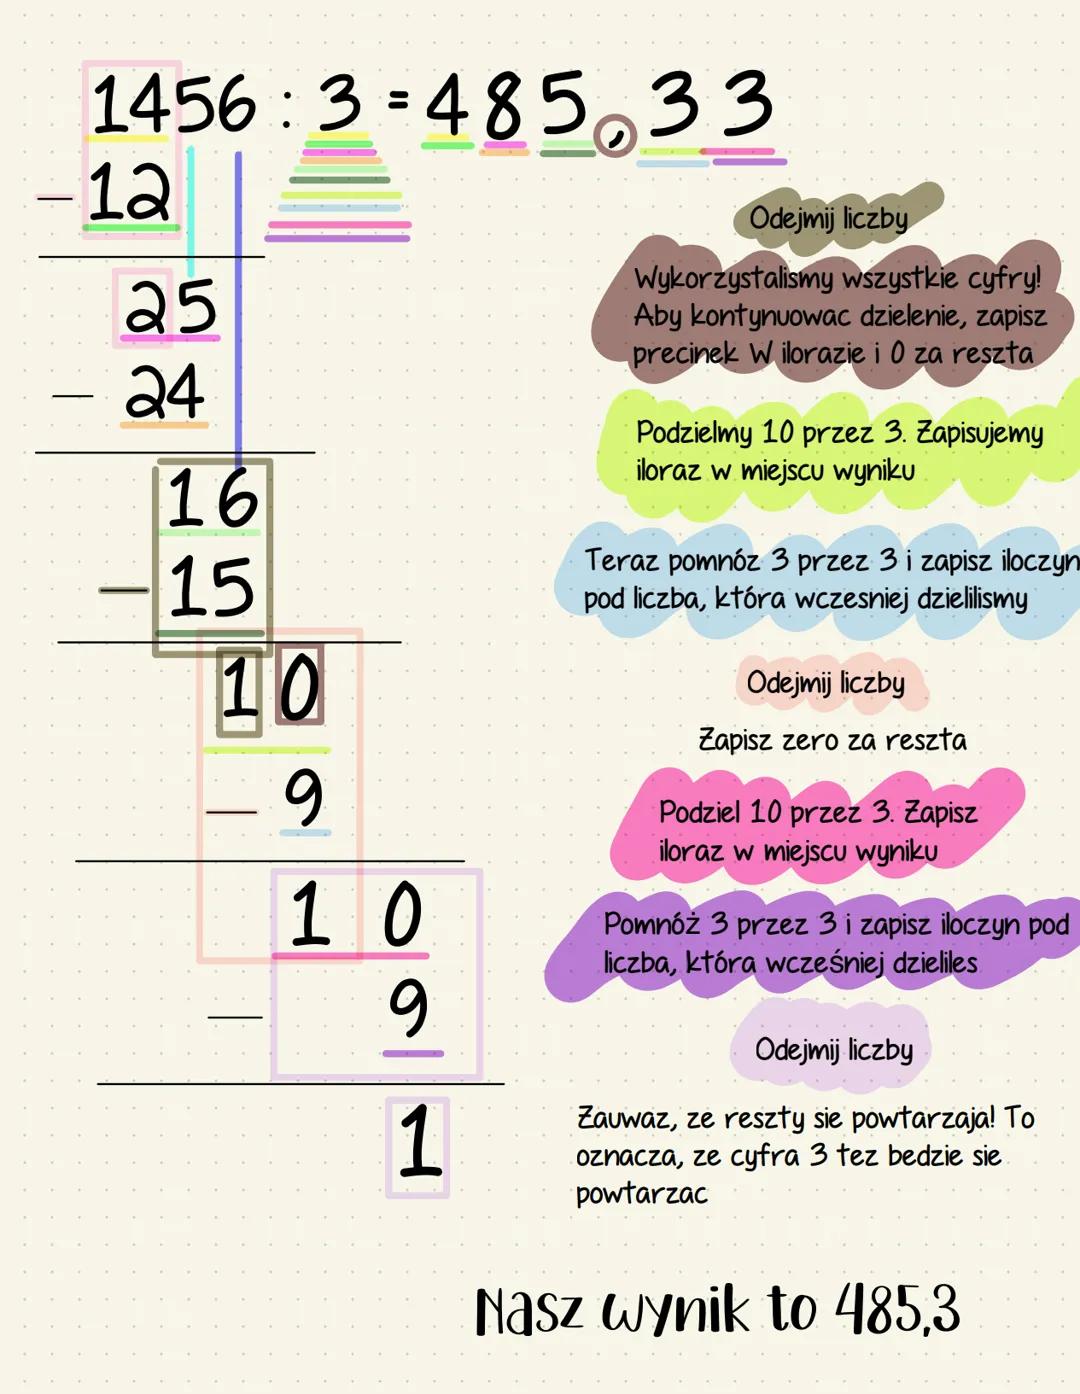 1456 : 3 = 485,33
- 12
25
- 24
16
- 15
10
- 9
10
- 9
1
Odejmij liczby
Wykorzystalismy wszystkie cyfry!
Aby kontynuowac dzielenie, zapisz
precinek W ilorazie i 0 za reszta
Podzielmy 10 przez 3. Zapisujemy
iloraz w miejscu wyniku
Teraz pomnóz 3 przez 3 i zapisz iloczyn
pod liczba, która wczesniej dzielilismy
Odejmij liczby
Zapisz zero za reszta
Podziel 10 przez 3. Zapisz
iloraz w miejscu wyniku
Pomnóż 3 przez 3 i zapisz iloczyn pod
liczba, która wcześniej dzieliles
Odejmij liczby
Zauwaz, ze reszty sie powtarzaja! To
oznacza, ze cyfra 3 tez bedzie sie
powtarzac
Nasz wynik to 485,3